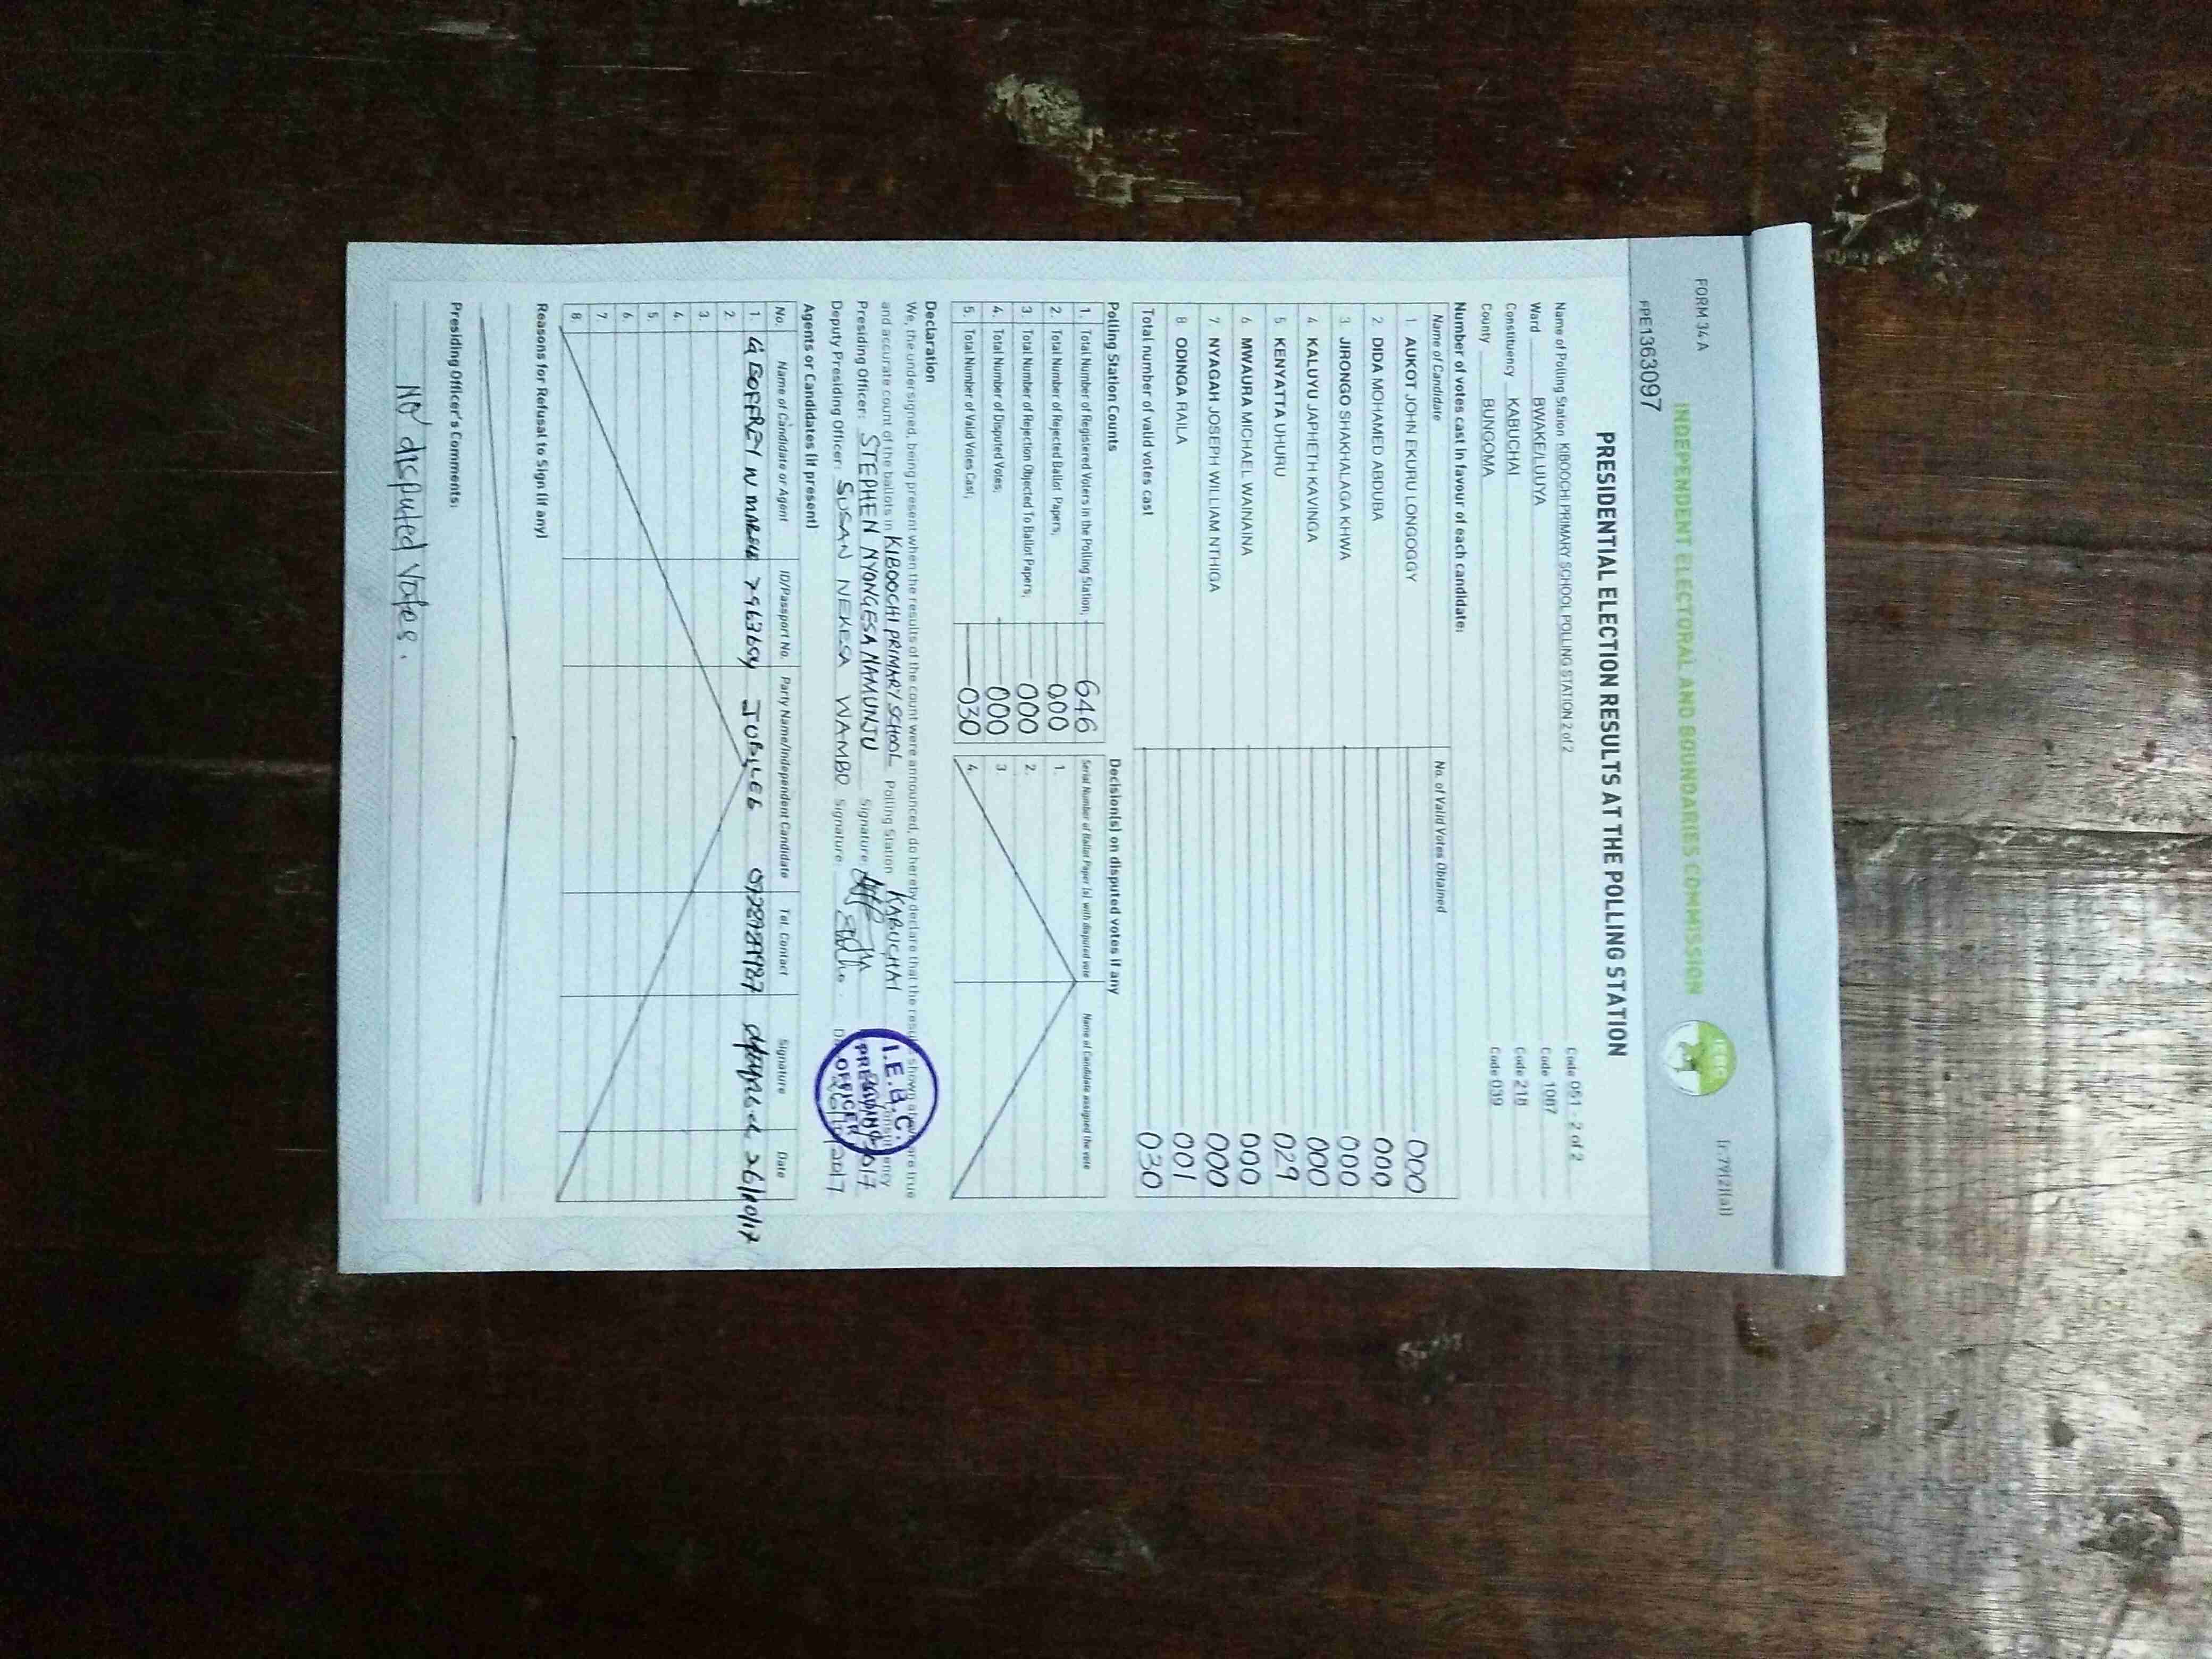 FORM 34A
r.79(2)(a)
INDEPENDENT ELECTORAL AND BOUNDARIES COMMISSION
IEBC
PPE1363097
PRESIDENTIAL ELECTION RESULTS AT THE POLLING STATION
Name of Polling Station KIBOOCHI PRIMARY SCHOOL POLLING STATION 2 of 2 Code 051 - 2 of 2
Ward BWAKE/LUUYA Code 1087
Constituency KABUCHAI Code 218
County BUNGOMA Code 039
Number of votes cast in favour of each candidate:
Name of Candidate No. of Valid Votes Obtained
1. AUKOT JOHN EKURU LONGOGGY 000
2. DIDA MOHAMED ABDUBA 000
3. JIRONGO SHAKHALAGA KHWA 000
4. KALUYU JAPHETH KAVINGA 000
5. KENYATTA UHURU 029
6. MWAURA MICHAEL WAINAINA 000
7. NYAGAH JOSEPH WILLIAM NTHIGA 000
8. ODINGA RAILA 001
Total number of valid votes cast 030
Polling Station Counts
1. Total Number of Registered Voters in the Polling Station; 646
2. Total Number of Rejected Ballot Papers; 000
3. Total Number of Rejection Objected To Ballot Papers; 000
4. Total Number of Disputed Votes; 000
5. Total Number of Valid Votes Cast; 030
Decision(s) on disputed votes if any
Serial Number of Ballot Paper (s) with disputed vote Name of Candidate assigned the vote
1.
2.
3.
4.
Declaration
We, the undersigned, being present when the results of the count were announced, do hereby declare that the results shown above are true
and accurate count of the ballots in KIBOOCHI PRIMARY SCHOOL Polling Station KABUCHAI Constituency
Presiding Officer: STEPHEN NYONGESA NAMUNJU Signature
Deputy Presiding Officer: SUSAN NEKESA WAMBO Signature
I.E.B.C.
PRESIDING
OFFICER
Agents or Candidates (if present)
No. Name of Candidate or Agent ID/Passport No. Party Name/Independent Candidate Tel. Contact Signature Date
1. 26/10/17
2.
3.
4.
5.
6.
7.
8.
Reasons for Refusal to Sign (if any)
Presiding Officer's Comments:
No disputed votes.